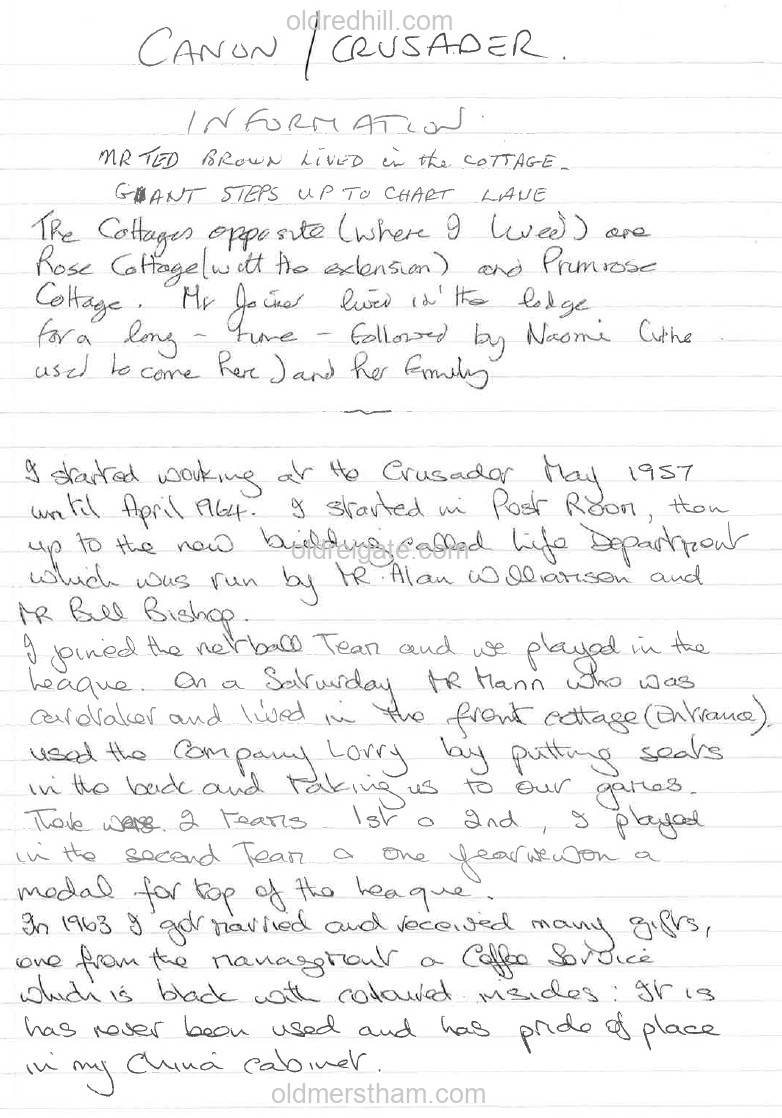 oldredhill.com
CANON / CRUSADER.
INFORMATION.
MR TED BROWN LIVED in the COTTAGE.
GIANT STEPS UP TO CHART LANE
The Cottages opposite (where I lived) are
Rose Cottage (with the extension) and Primrose
Cottage. Mr Joiner lived in the lodge
for a long - time - followed by Naomi (who
used to come here) and her family
I started working at the Crusador May 1957
until April 1964. I started in Post Room, then
up to the new building called Life Department
oldreigate.com
which was run by MR. Alan Williamson and
MR Bill Bishop.
I joined the netball Team and we played in the
League. On a Saturday MR Mann who was
caretaker and lived in the front cottage (Entrance)
used the Company Lorry by putting seats
in the back and taking us to our games.
There were 2 teams. 1st & 2nd, I played
in the second Team & one year we won a
medal for top of the League.
In 1963 I got married and received many gifts,
one from the management a Coffee Service
which is black with coloured insides: It is
has never been used and has pride of place
in my China cabinet.
oldmerstham.com